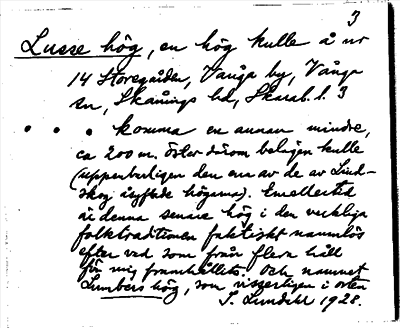 3
Lusse hög, en hög kulle å nr
14 Storegården, Vånga by, Vånga
sn, Skånings hd, Skarab. l. 3
. . . komma en annan mindre,
ca 200 m. öster därom belägen kulle
(uppenbarligen den ena av de av Lind-
skog åsyftade högarna). Emellertid
är denna senare hög i den verkliga
folktraditionen faktiskt namnlös
efter vad som från flera håll
för mig framhållits. Och namnet
Lumbers hög, som visserligen i orten
S. Lundahl 1928.